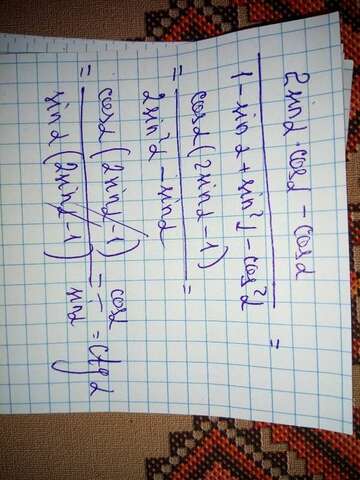 2sinα·cosα - cosα
1 - sinα + sin²α - cos²α =
= cosα(2sinα-1)
2sin²α - sinα =
= cosα(2sinα-1)
sinα(2sinα-1) = cosα
sinα = ctgα